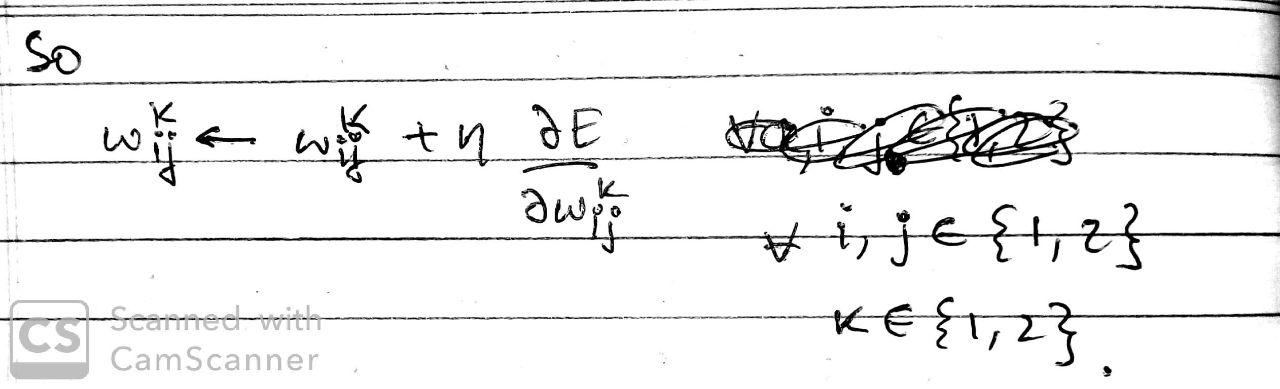 So
w_{ij}^{k} ← w_{ij}^{k} + η ∂E / ∂w_{ij}^{k}
∀ i, j ∈ {1, 2}
k ∈ {1, 2}.
CS Scanned with
CamScanner